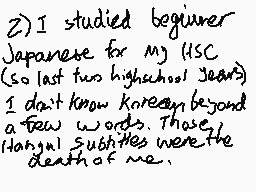 2) I studied beginner
Japanese for my HSC
(so last two highschool years)
I don't know Korean beyond
a few words. Those
Hangul subtitles were the
death of me.